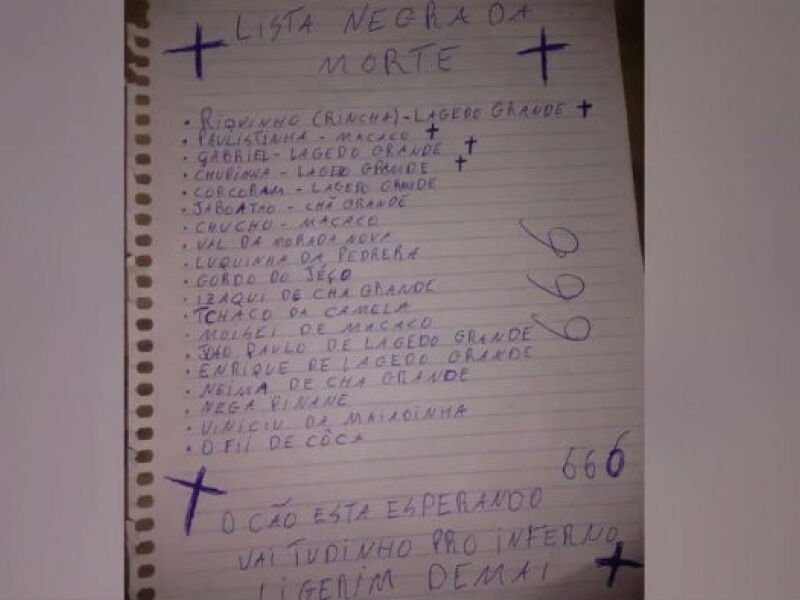 LISTA NEGRA DA
MORTE
• RIQUINHO (RINCHA) - LAGEDO GRANDE
• PAULISTINHA - MACACO
• GABRIEL - LAGEDO GRANDE
• CHUPINHA - LAGEDO GRANDE
• CORCORAM - LAGEDO GRANDE
• JABOATAO - CHÃ GRANDE
• CHUCHU - MACACO
• VAL DA MORADA NOVA
• LUQUINHA DA PEDRERA
• GORDO DO JÉÇO
• IZAQUI DE CHA GRANDE
• TCHACO DA CAMELA
• MOISEI DE MACACO
• JOAO PAULO DE LAGEDO GRANDE
• ENRIQUE DE LAGEDO GRANDE
• NEIMA DE CHA GRANDE
• NEGA
• VINICIU DA MAIADINHA
• O FII DE CÔCA
666
666
O CÃO ESTA ESPERANDO
VAI TUDINHO PRO INFERNO
LIGERIM DEMAI